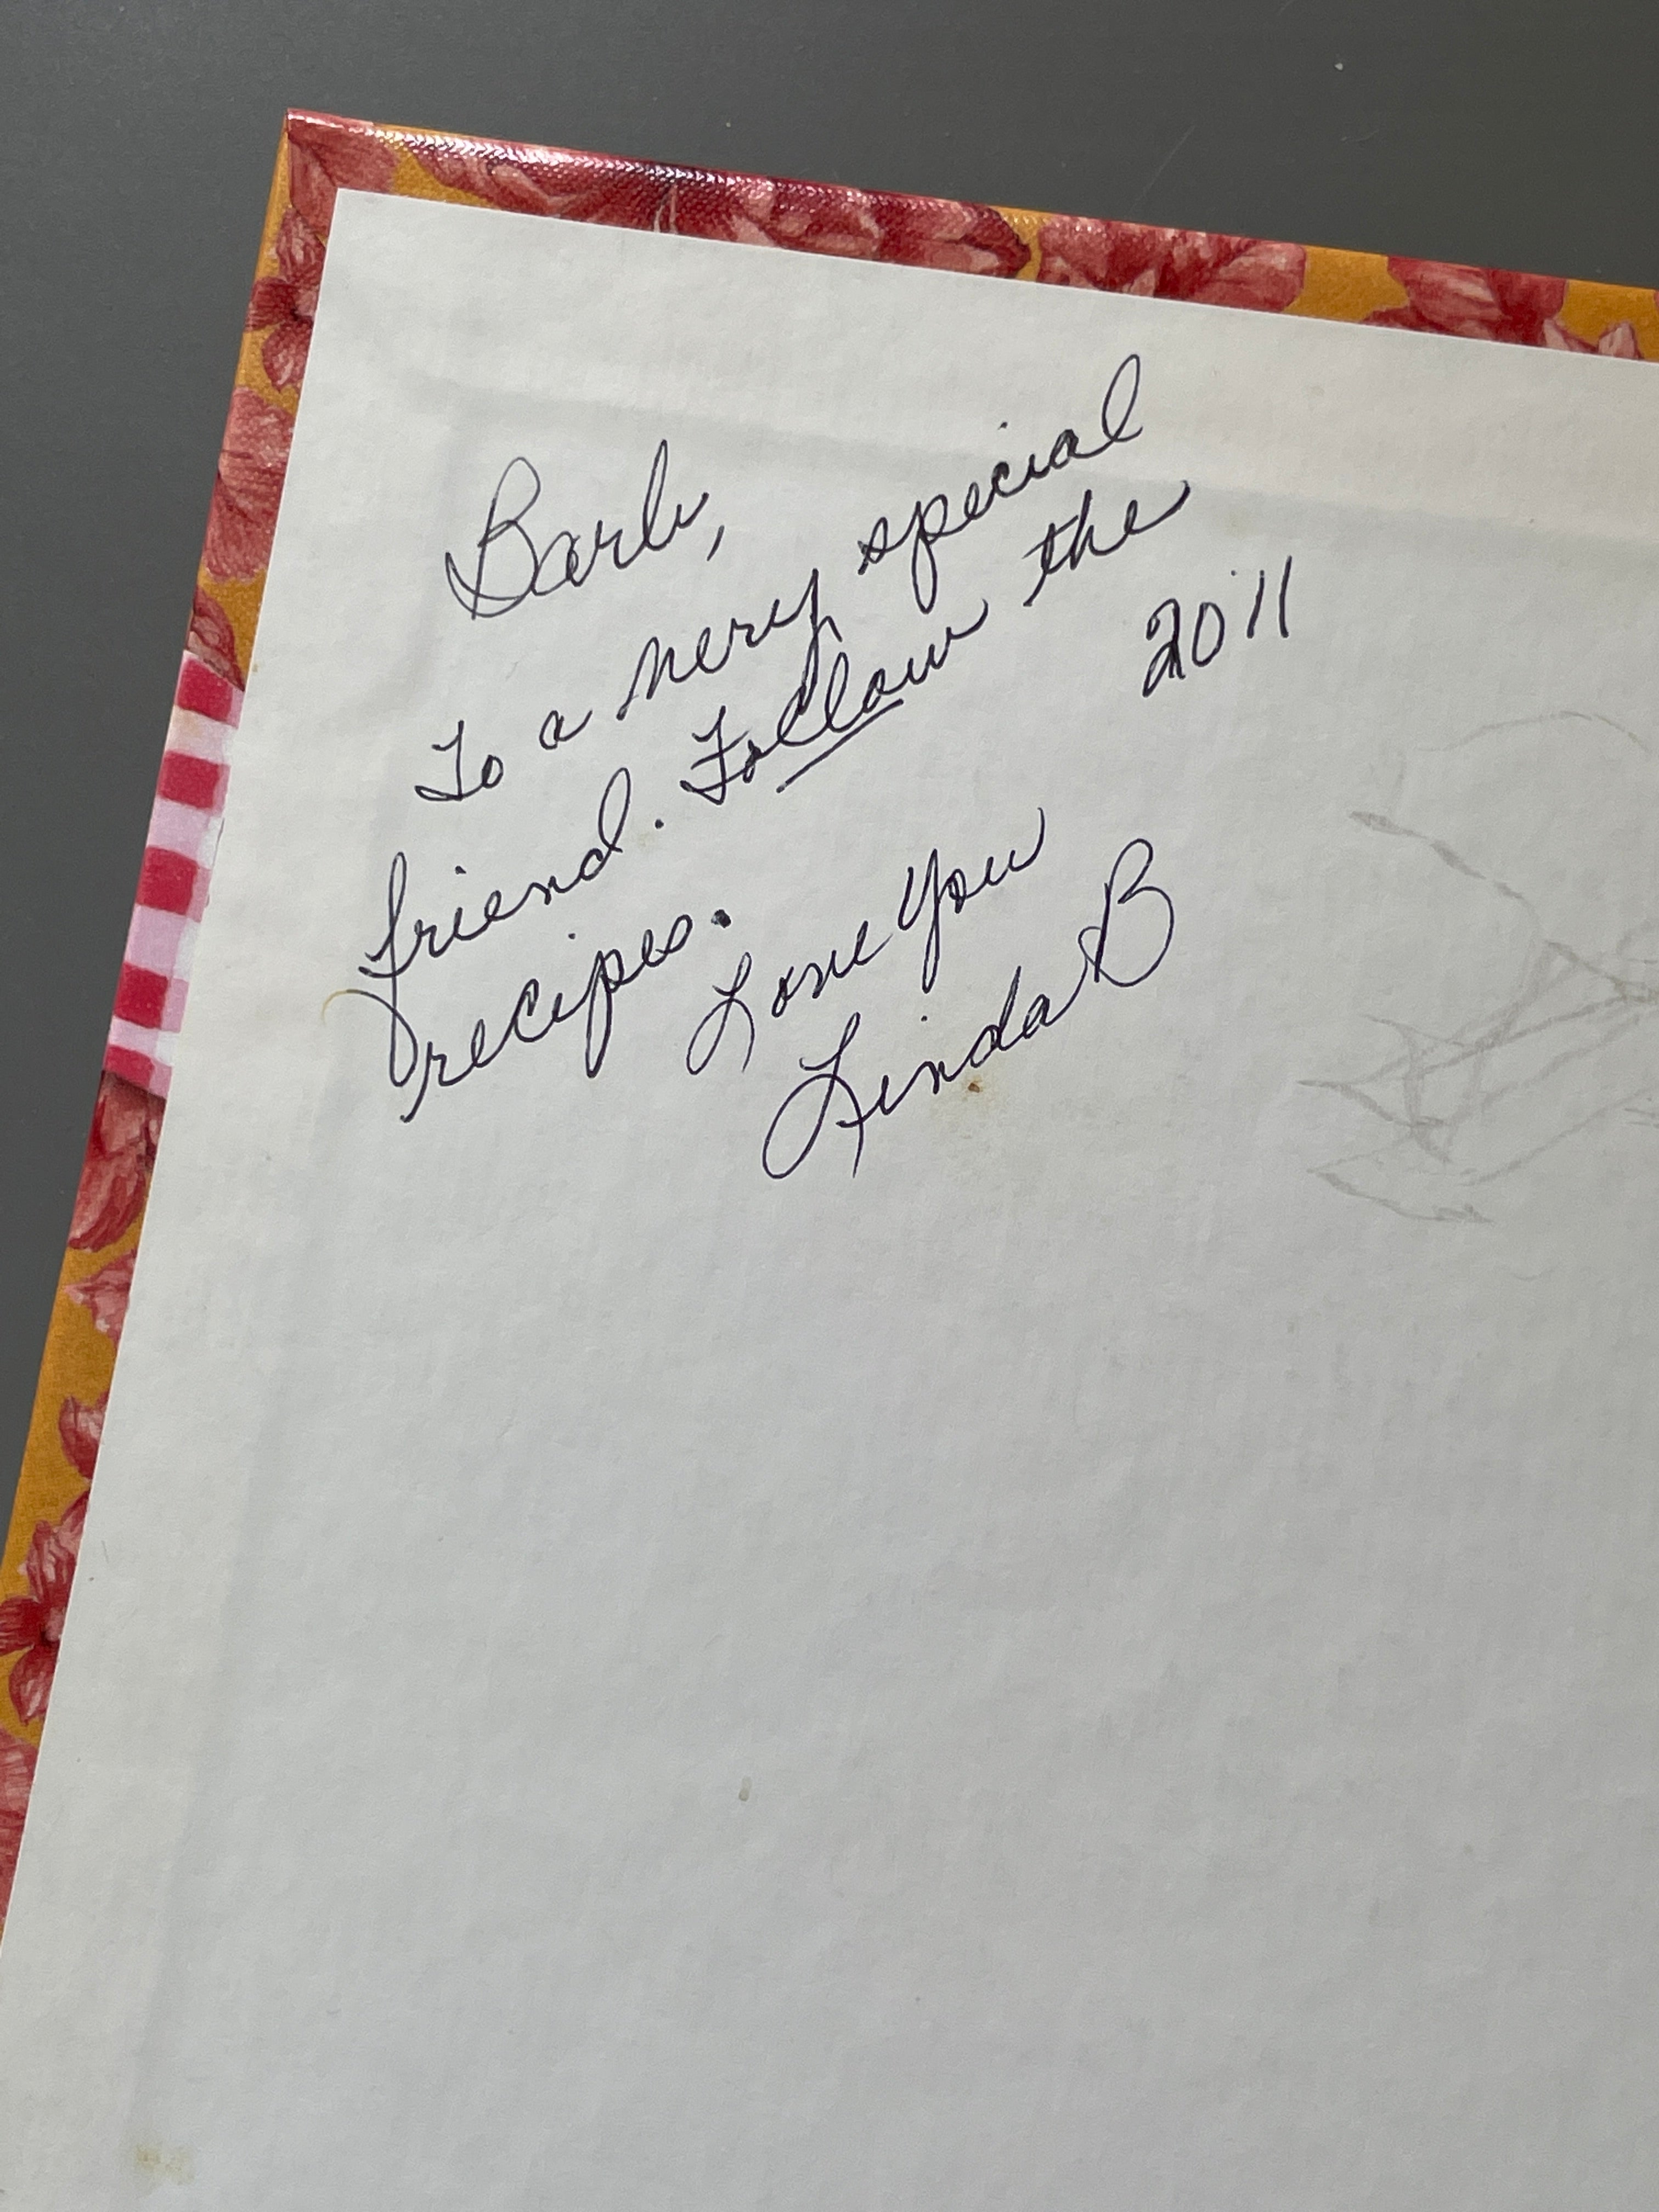 Barb,
To a very special
friend. Follow the
recipes. 2011
Love You
Linda B